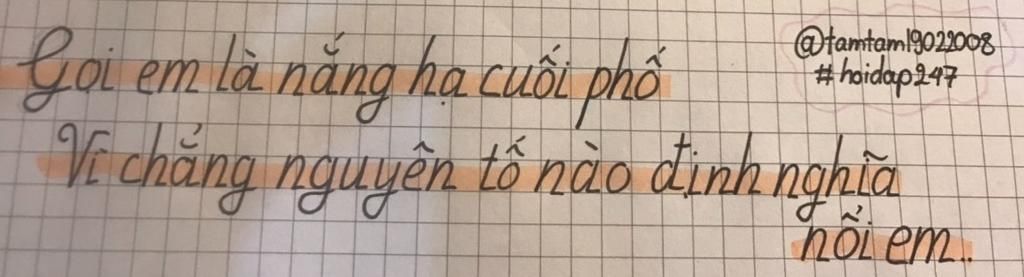 Gọi em là nắng hạ cuối phố
@tamtam19022008
#hoidap247
Vì chẳng nguyên tố nào định nghĩa
nổi em..